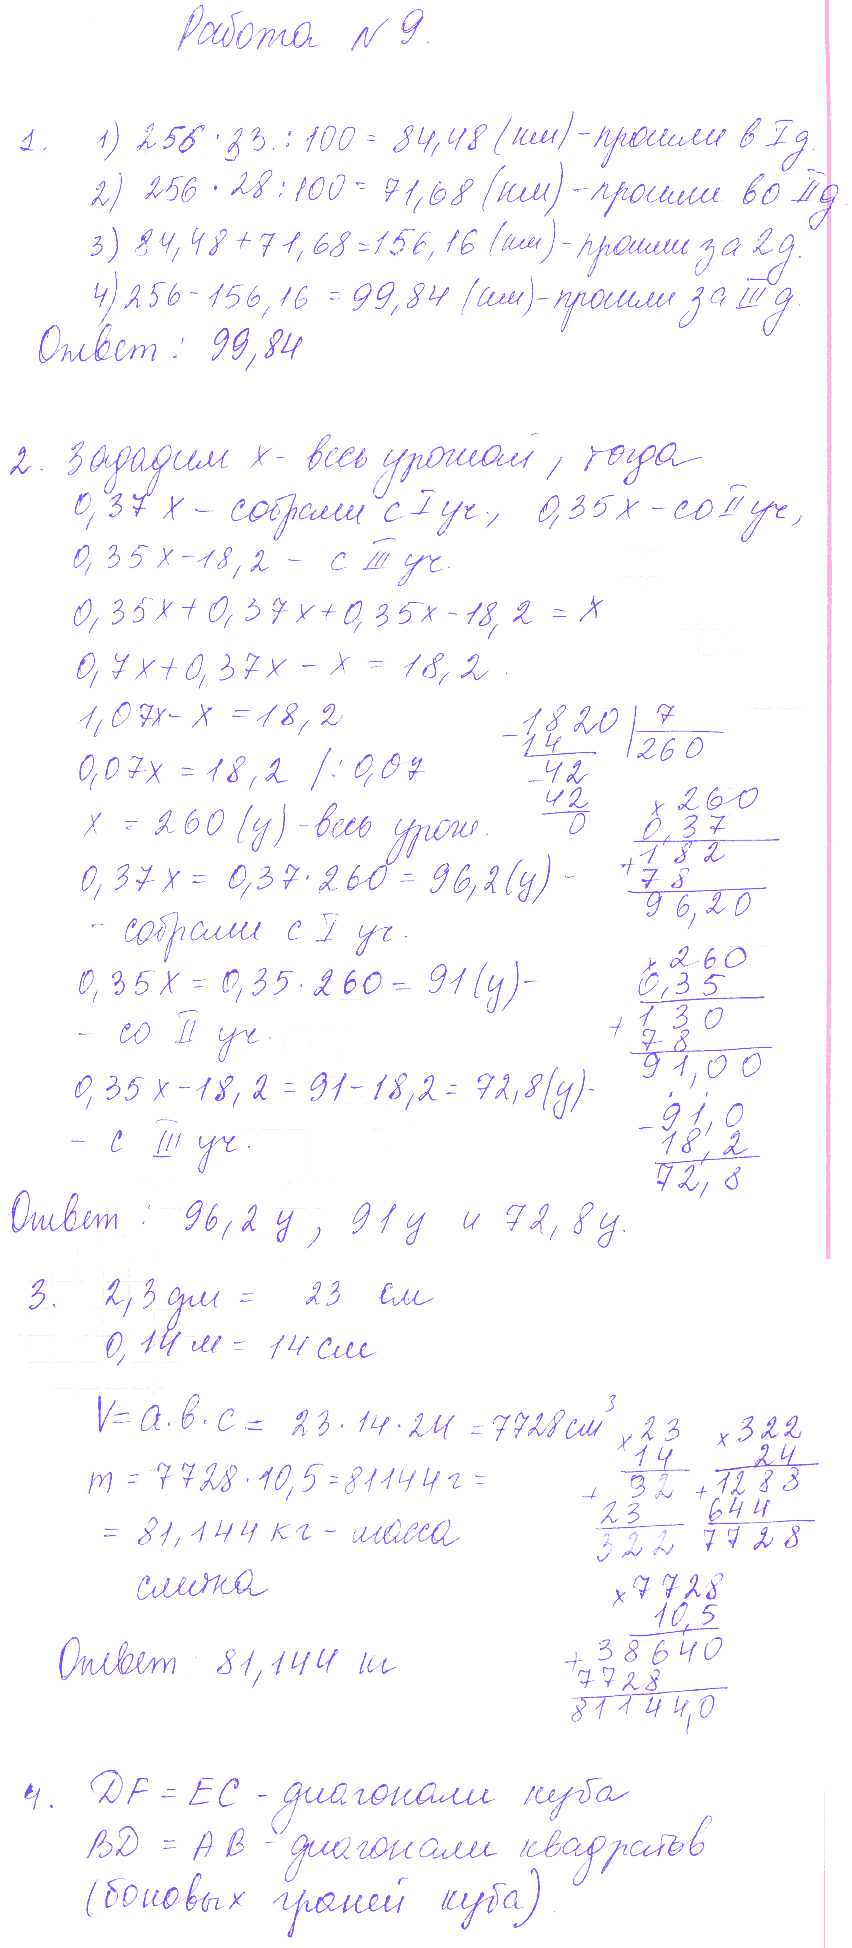 Работа N 9.
1. 1) 256 · 33 : 100 = 84,48 (км) - прошли в I д.
2) 256 · 28 : 100 = 71,68 (км) - прошли во II д
3) 84,48 + 71,68 = 156,16 (км) - прошли за 2 д.
4) 256 - 156,16 = 99,84 (км) - прошли за III д.
Ответ : 99,84
2. Зададим x - весь урожай, тогда
0,37 x - собрали с I уч., 0,35x - со II уч,
0,35x - 18,2 - с III уч.
0,35x + 0,37x + 0,35x - 18,2 = x
0,7x + 0,37x - x = 18,2
1,07x - x = 18,2
0,07x = 18,2 /: 0,07
x = 260 (ц) - весь урож.
0,37x = 0,37 · 260 = 96,2 (ц) -
- собрали с I уч.
0,35x = 0,35 · 260 = 91 (ц) -
- со II уч.
0,35x - 18,2 = 91 - 18,2 = 72,8 (ц) -
- с III уч.
-1820 | 7
14 260
-42
42
0
× 260
0,37
+ 182
78
96,20
× 260
0,35
+ 130
78
91,00
- 91,0
18,2
72,8
Ответ : 96,2 ц, 91 ц и 72,8 ц.
3. 2,3 дм = 23 см
0,14 м = 14 см
V = a · b · c = 23 · 14 · 24 = 7728 см³
m = 7728 · 10,5 = 81144 г =
= 81,144 кг - масса
слитка
× 23
14
+ 92
23
322
× 322
24
+ 1288
644
7728
× 7728
10,5
+ 38640
7728
81144,0
Ответ : 81,144 кг
4. DF = EC - диагонали куба
BD = AB - диагонали квадратов
(боковых граней куба)